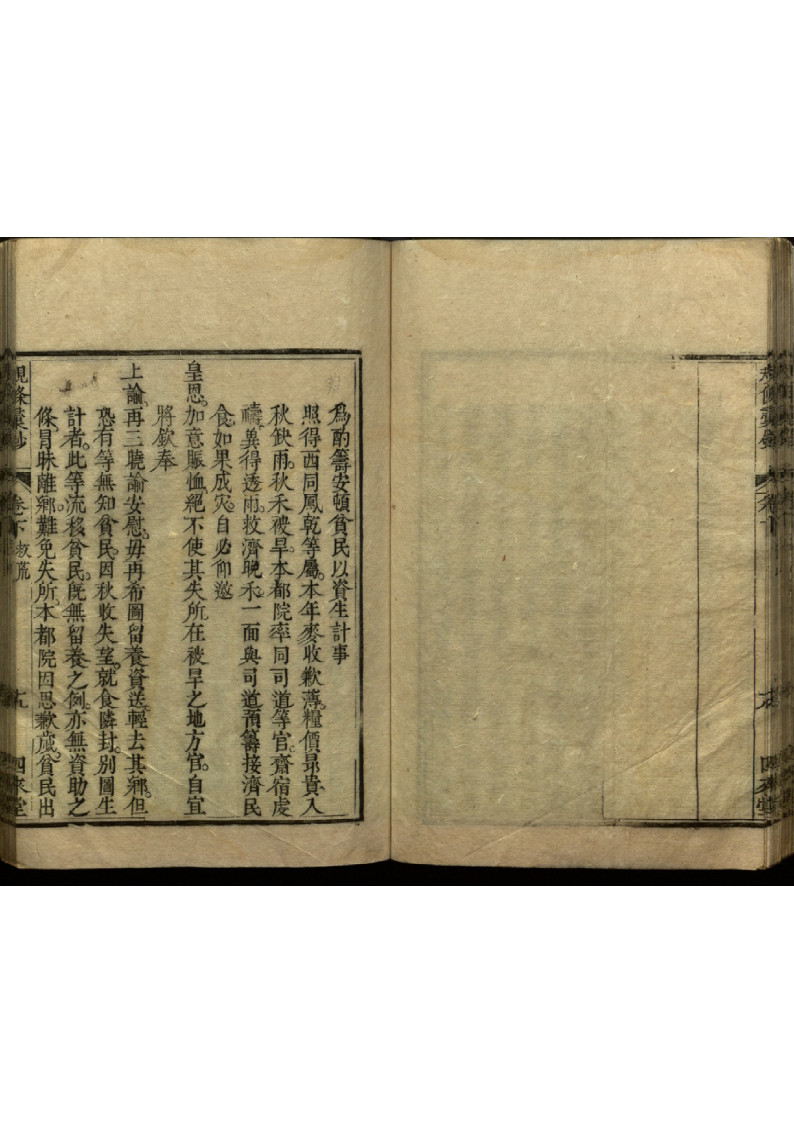 為酌籌安頓貧民以資生計事
照得西同鳳乾等屬。本年麥收歉薄。糧價昻貴。入
秋缺雨。秋禾被旱。本都院率同司道等官。齋宿處
禱。異得透雨。救濟晚禾。一面與司道預籌接濟民
食。如果成灾。自必仰邀
皇恩。加意賑恤。絕不使其失所。在被旱之地方官。自宜
將欽奉
上諭。再三曉諭安慰。毋再希圖留養資送。輕去其鄉。但
恐有等無知貧民。因秋收失望。就食隣封。別圖生
計者。此等流移貧民。既無留養之例。亦無資助之
條。冐昧離鄉。難免失所。本都院因思歉歲。貧民出
規條彚鈔 卷下 救荒 十九 四來堂
卷下 四來堂